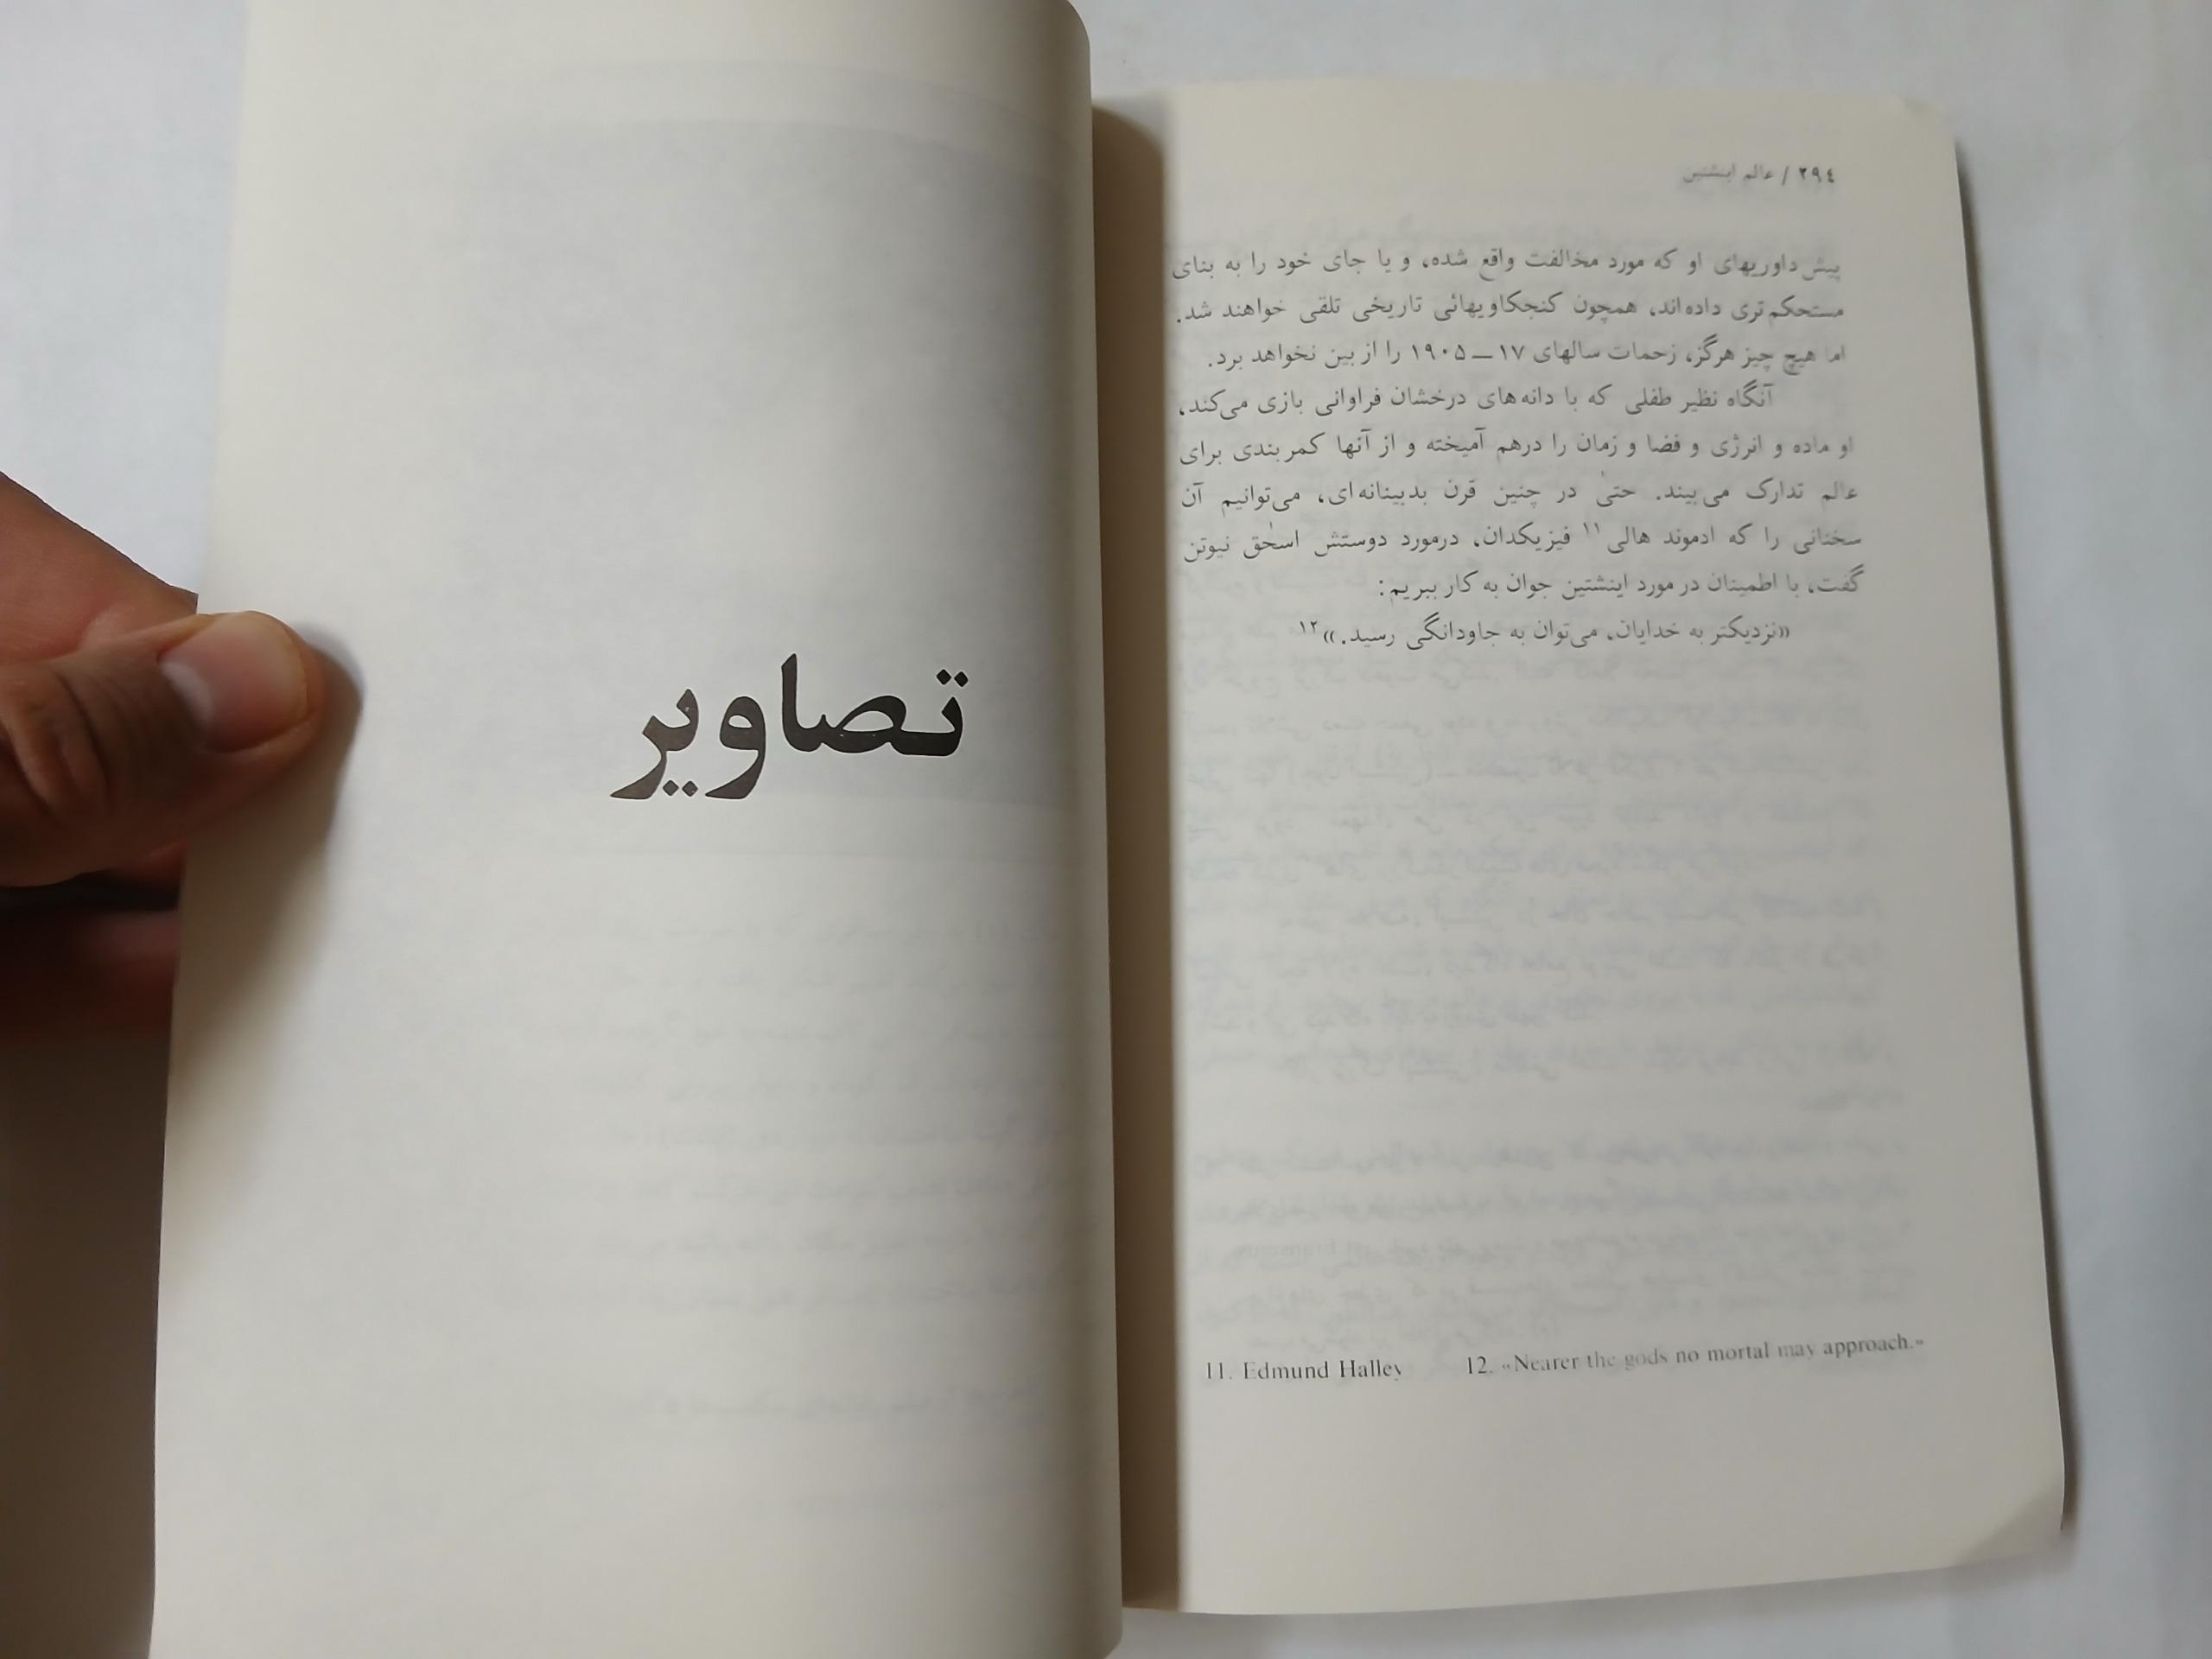 ۲۹٤ / عالم اینشتین
پیش داوریهای او که مورد مخالفت واقع شده، و یا جای خود را به بنای
مستحکم‌تری داده‌اند، همچون کنجکاویهائی تاریخی تلقی خواهند شد.
اما هیچ چیز هرگز، زحمات سالهای ۱۷ــ۱۹۰۵ را از بین نخواهد برد.
آنگاه نظیر طفلی که با دانه‌های درخشان فراوانی بازی می‌کند،
او ماده و انرژی و فضا و زمان را درهم آمیخته و از آنها کمربندی برای
عالم تدارک می‌بیند. حتیٰ در چنین قرن بدبینانه‌ای، می‌توانیم آن
سخنانی را که ادموند هالی۱۱ فیزیکدان، درمورد دوستش اسحٰق نیوتن
گفت، با اطمینان در مورد اینشتین جوان به کار ببریم:
«نزدیکتر به خدایان، می‌توان به جاودانگی رسید.»۱۲
11. Edmund Halley 12. «Nearer the gods no mortal may approach.»
تصاویر